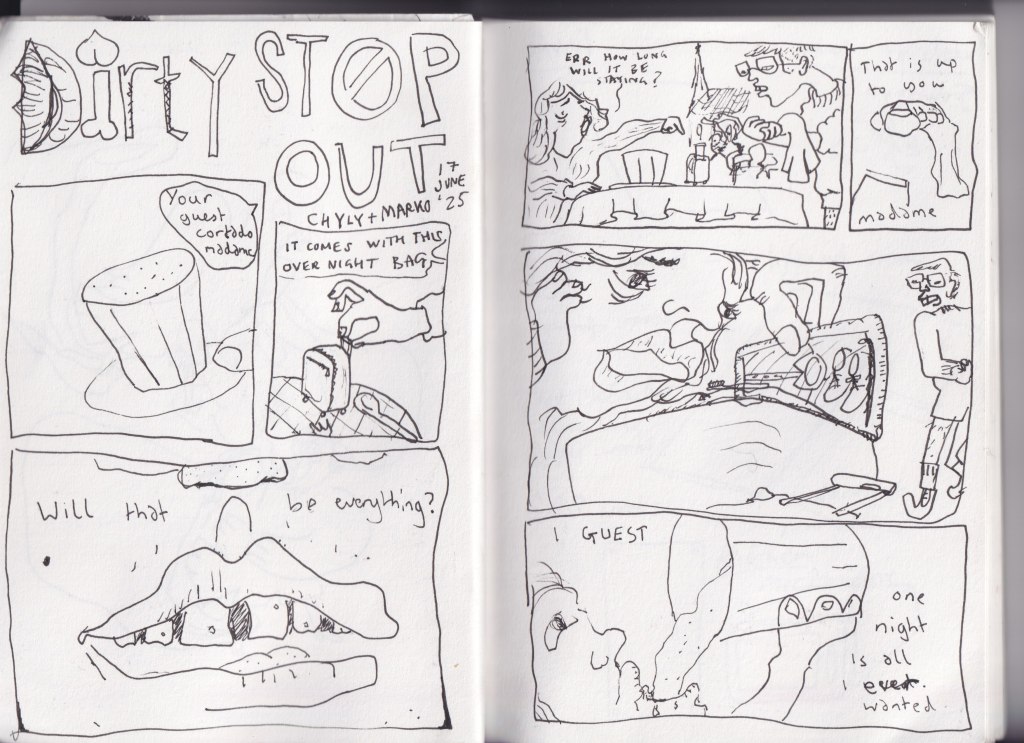 Dirty STOP
OUT
17
JUNE
'25
CHYLY + MARKO
Your
guest
cortado
madame
IT COMES WITH THIS
OVER NIGHT BAG
Will that be everything?
ERR HOW LONG
WILL IT BE
STAYING?
That is up
to you
madame
I GUEST
one
night
is all
I ever
wanted